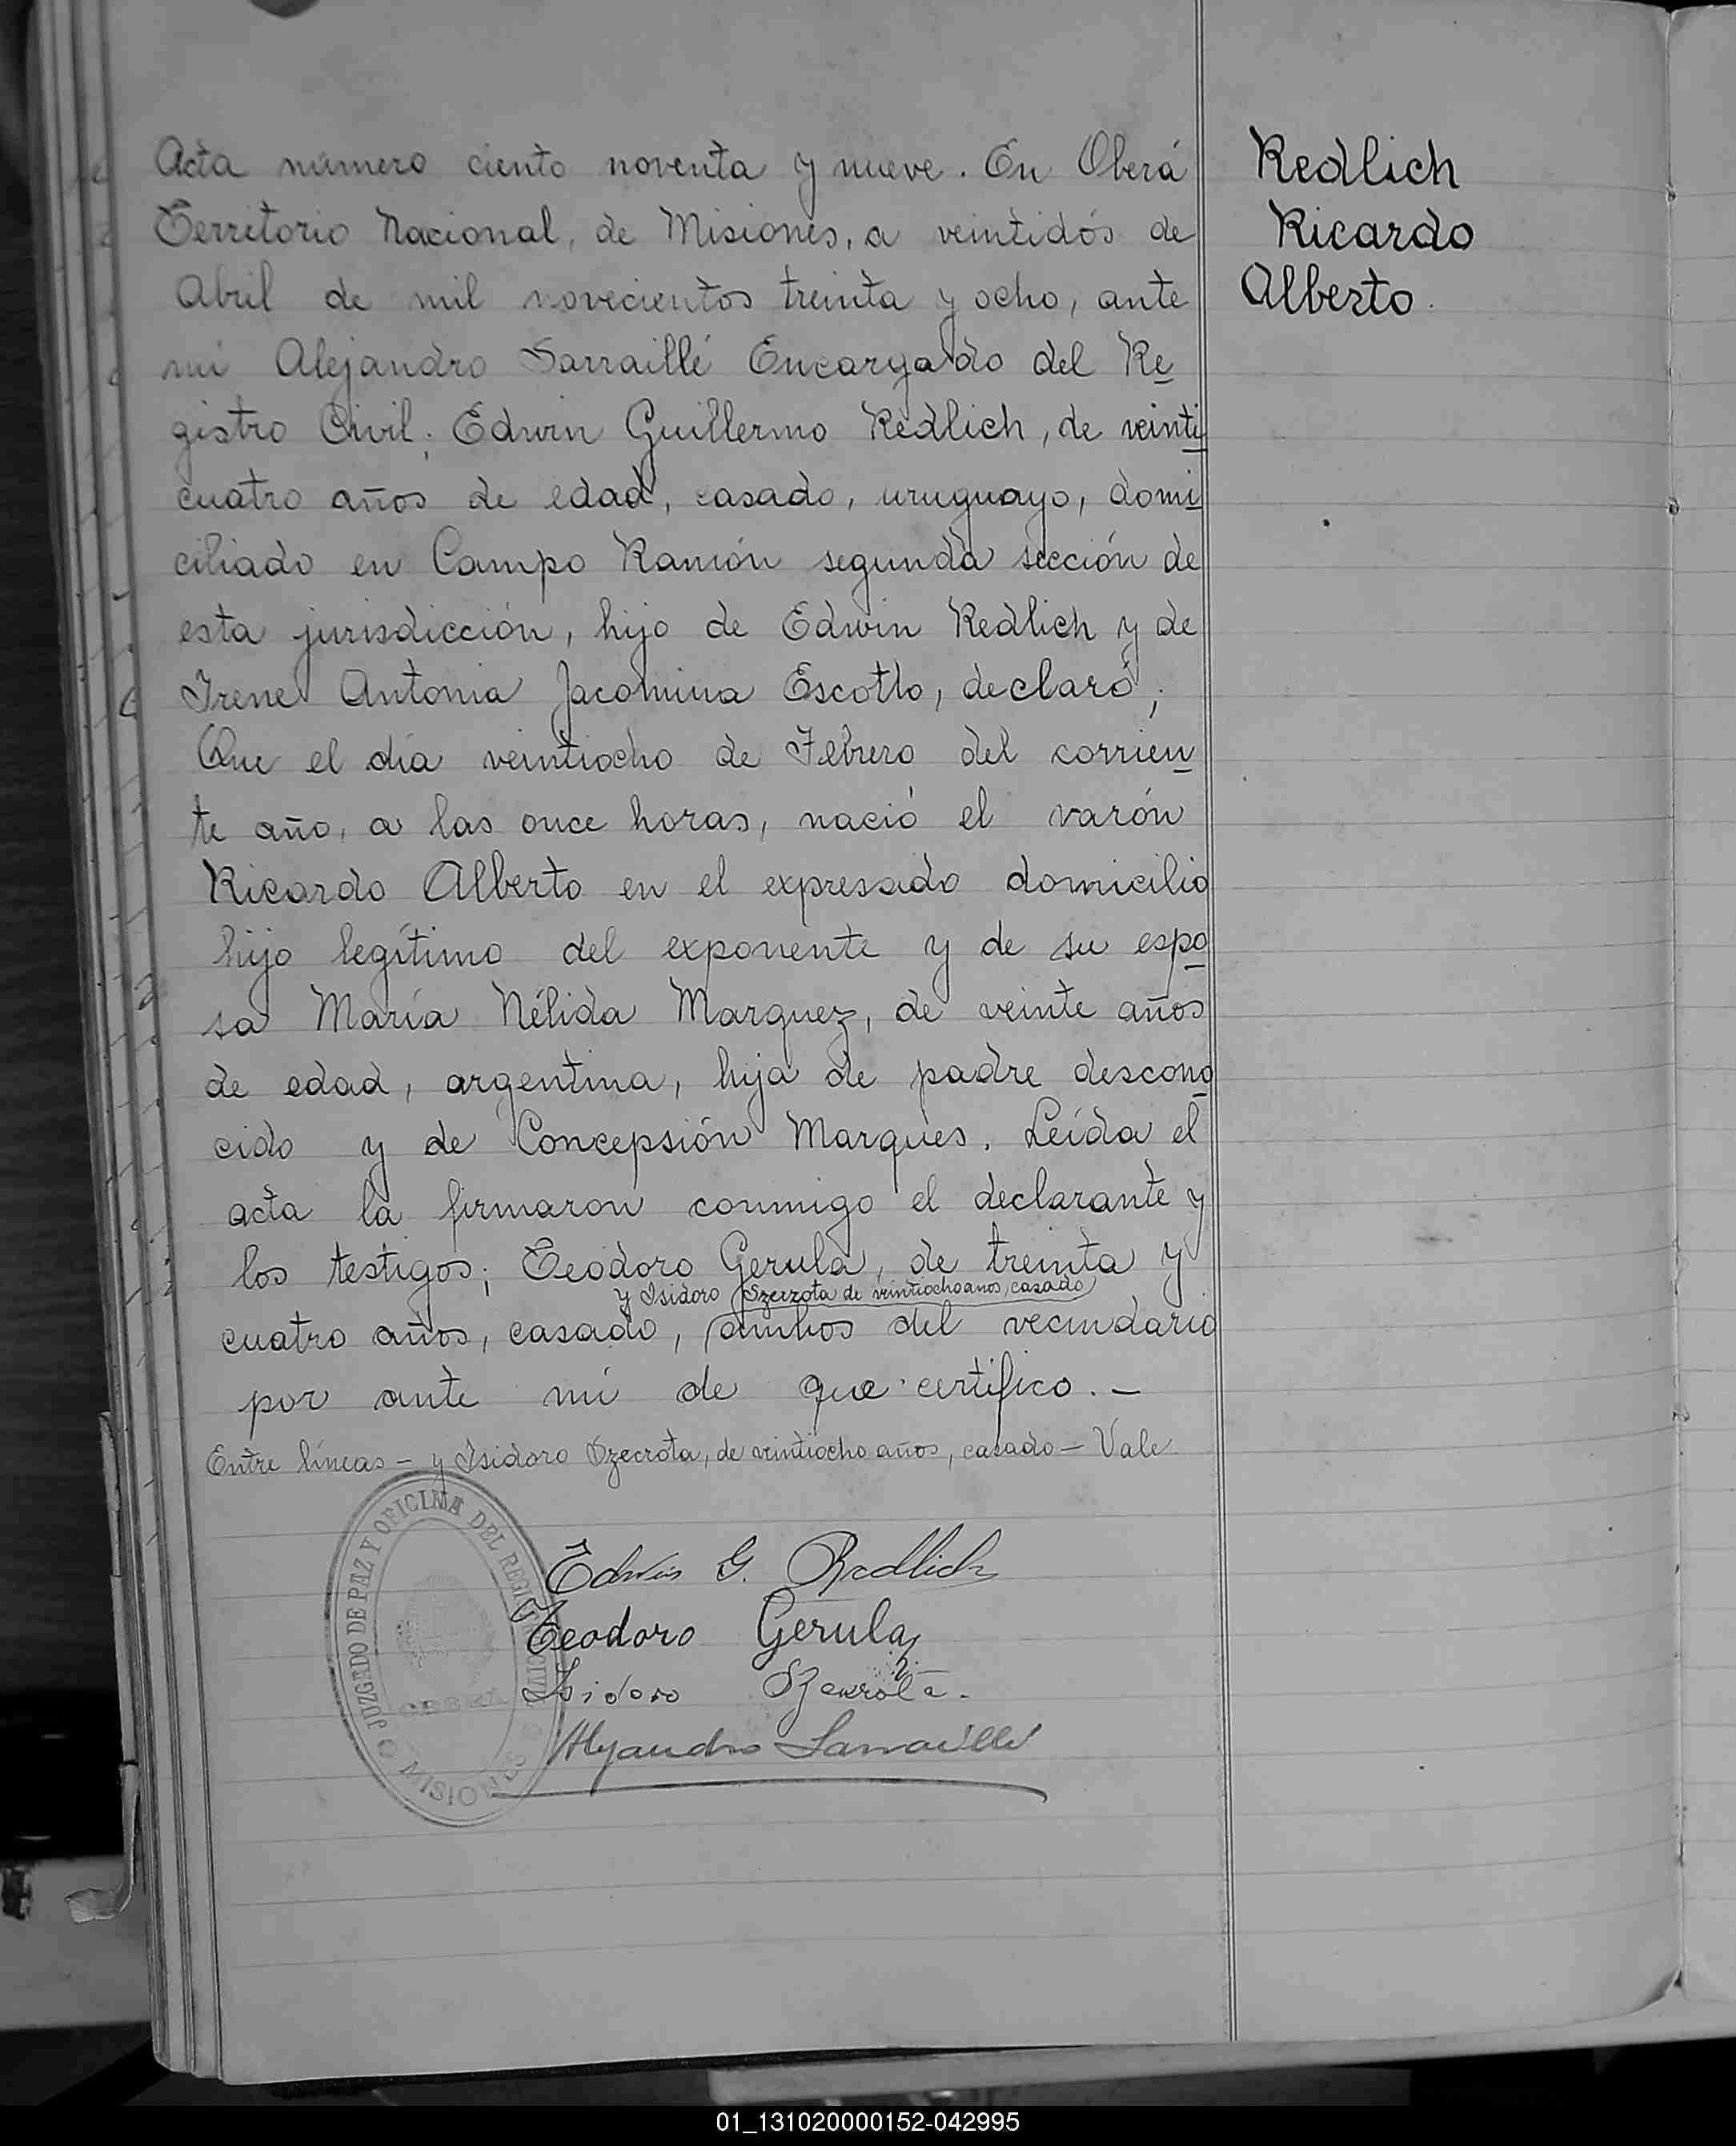 Acta número ciento noventa y nueve. En Oberá
Territorio Nacional, de Misiones, a veintidós de
Abril de mil novecientos treinta y ocho, ante
mí Alejandro Sarraillé Encargado del Re
gistro Civil; Edwin Guillermo Redlich, de veinti
cuatro años de edad, casado, uruguayo, domi
ciliado en Campo Ramón segunda sección de
esta jurisdicción, hijo de Edwin Redlich y de
Irene Antonia Jacomina Escotto, declaró;
Que el día veintiocho de Febrero del corrien
te año, a las once horas, nació el varón
Ricardo Alberto en el expresado domicilio
hijo legítimo del exponente y de su espo
sa María Nélida Marquez, de veinte años
de edad, argentina, hija de padre descono
cido y de Concepsión Marqués. Leída el
acta la firmaron conmigo el declarante y
los testigos; Teodoro Gerula, de treinta y
y Isidoro Szeczota de veintiocho años, casado
cuatro años, casado, ambos del vecindario
por ante mí de que certifico.—
Entre líneas — y Isidoro Szecrota, de veintiocho años, casado — Vale.
Redlich
Ricardo
Alberto.
JUZGADO DE PAZ Y OFICINA DEL REGISTRO CIVIL
MISIONES
Edwin G. Redlich
Teodoro Gerula
Isidoro
Alejandro Sarraillé
01_131020000152-042995